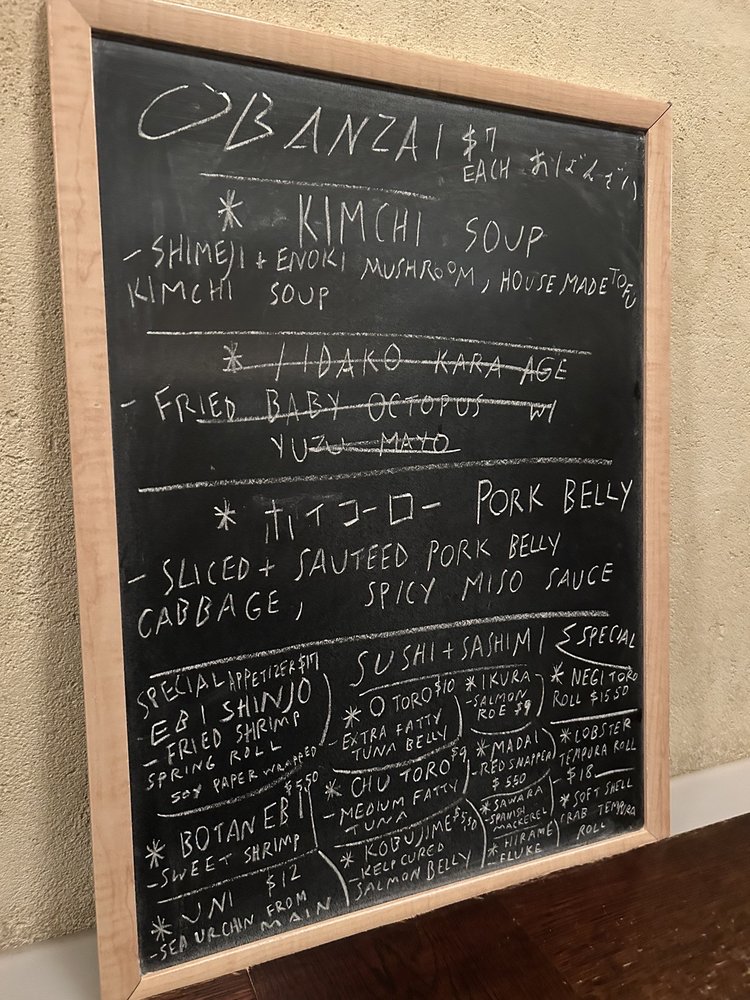 OBANZAI $7 EACH おばんざい
* KIMCHI SOUP
- SHIMEJI + ENOKI MUSHROOM, HOUSE MADE TOFU
KIMCHI SOUP
* IIDAKO KARA AGE
- FRIED BABY OCTOPUS W/
YUZU MAYO
* ホイコーロー PORK BELLY
- SLICED + SAUTEED PORK BELLY
CABBAGE, SPICY MISO SAUCE
SPECIAL APPETIZER $17
- EBI SHINJO
- FRIED SHRIMP
SPRING ROLL
SOY PAPER WRAPPED
$5.50
* BOTAN EBI
- SWEET SHRIMP
* UNI $12
- SEA URCHIN FROM
MAIN
SUSHI + SASHIMI SPECIAL
* O TORO $10
- EXTRA FATTY
TUNA BELLY
* CHU TORO $9
- MEDIUM FATTY
TUNA
* KOBUJIME $5.50
- KELP CURED
SALMON BELLY
* IKURA
- SALMON
ROE $9
* MADAI
- RED SNAPPER
$5.50
* SAWARA
- SPANISH
MACKEREL
* HIRAME
- FLUKE
* NEGI TORO
ROLL $15.50
* LOBSTER
TEMPURA ROLL
- $18
* SOFT SHELL
CRAB TEMPURA
ROLL